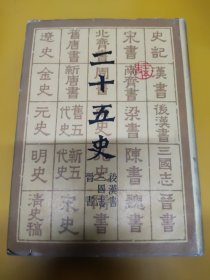 史記 漢書 後漢書 三國志 晉書
宋書 南齊書 梁書 陳書 魏書
北齊書 周書
二十五史
後漢書
三國志
晉書
舊唐書 新唐書 舊五代史 新五代史 宋史
遼史 金史 元史 明史 清史稿